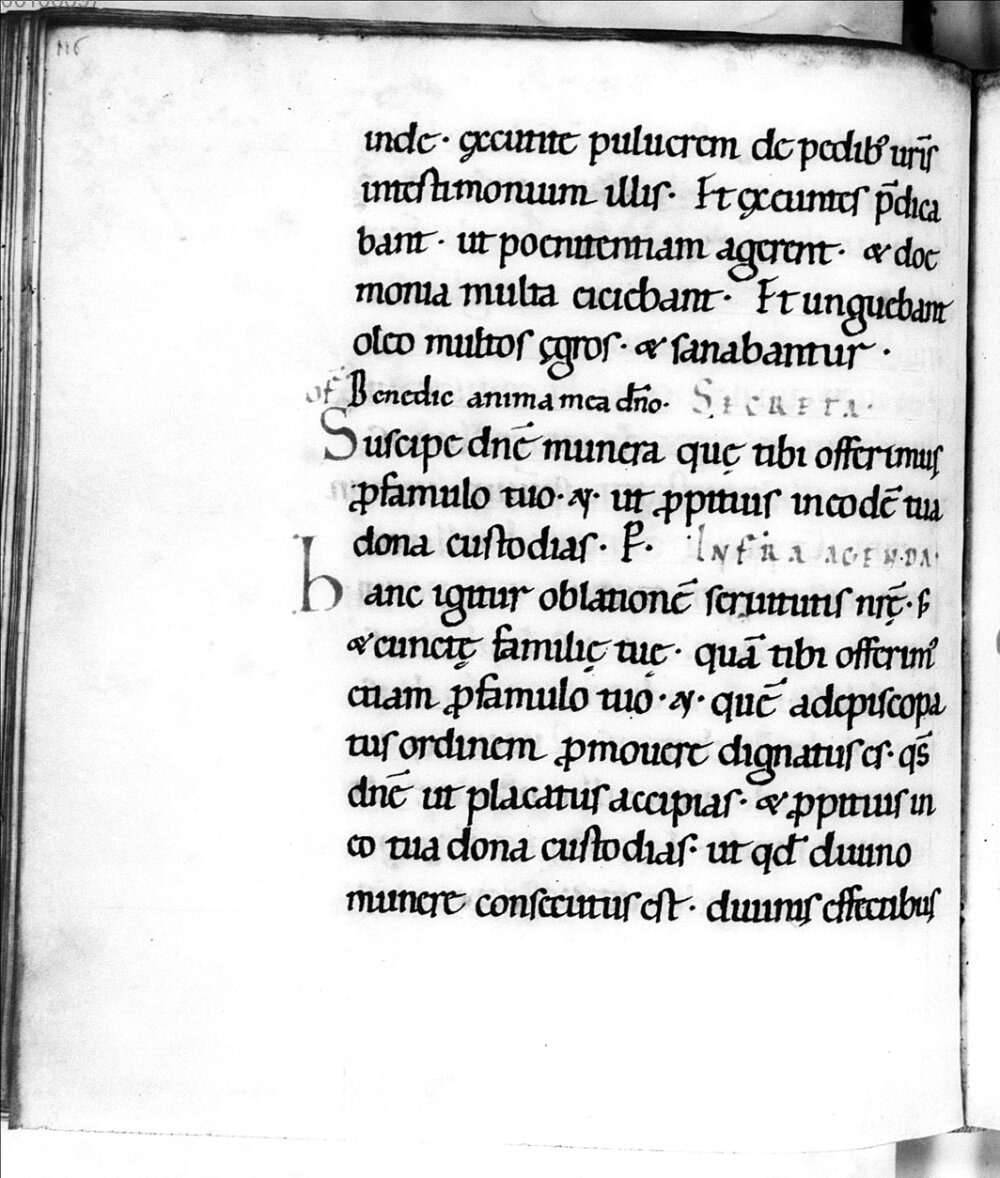 116
inde · excutite puluerem de pedib' ur̄is
intestimonium illis · Et exeuntes p̄dica
bant · ut poenitentiam agerent · & doe
monia multa eiciebant · Et unguebant
oleo multos ęgros · & sanabantur ·
of̄ Benedic anima mea dn̄o · SECRETA ·
Suscipe dn̄e munera quę tibi offerimus
ꝓfamulo tuo · N · ut ꝓpitius ineodē tua
dona custodias · P · INFRA AGENDA ·
hanc igitur oblationē seruitutis nr̄ę · s
&cunctę familię tuę · quā tibi offerim'
etiam ꝓfamulo tuo · N · quē adepiscopa
tus ordinem ꝓmouere dignatus es · qs̄
dn̄e ut placatus accipias · & ꝓpitius in
eo tua dona custodias · ut qd̄ diuino
munere consecutus est · diuinis effectibus